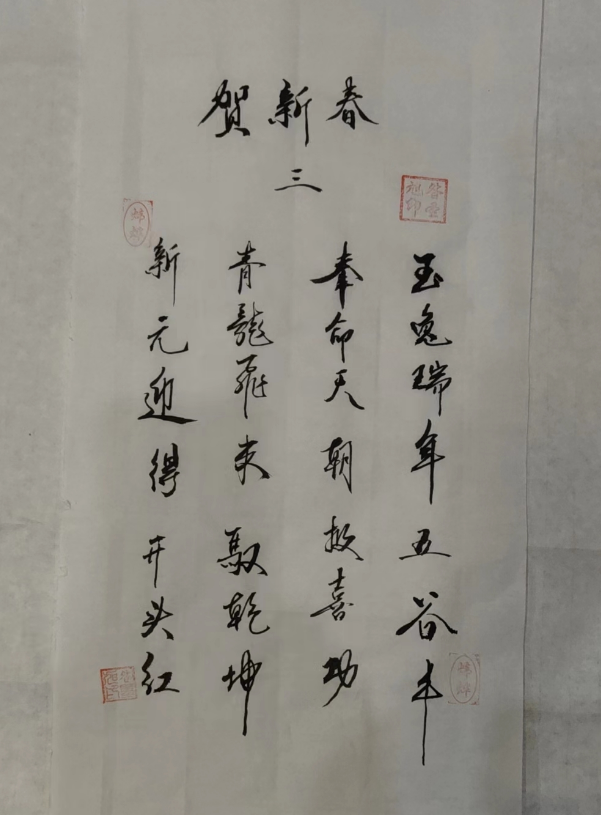 贺新春
三
玉兔瑞年五谷丰
奉命天朝报喜功
青龍飛来馭乾坤
新元迎得开头红